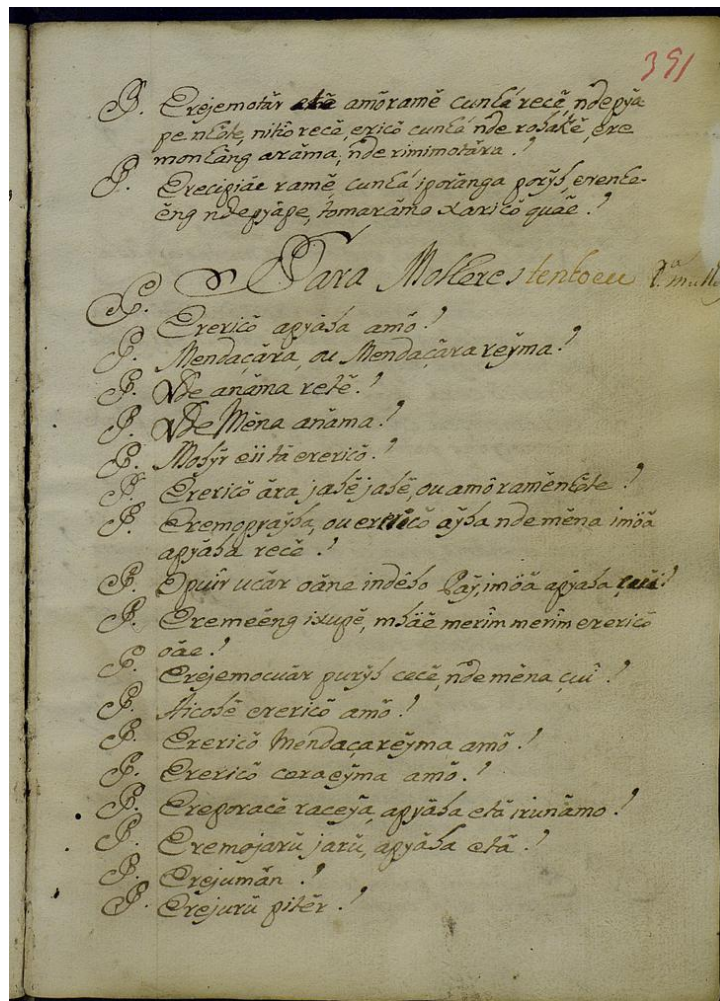 391
P. Erejemotár etã amõramẽ cunhá recẽ, ndepyá
pe nhõte, nitio recẽ, ericõ cunhá nde robakẽ, ere
monhãng arãma, nde rimimotára.!
P. Erecipiác ramẽ, cunhá iporãnga porỹb, erenhe-
ẽng ndepyápe, tomarãmo xaricõ quáe.!
Para Molheres tenhoeu P.ª mulh
P. Erericõ apyába amõ.!
P. Mendaçára, ou Mendaçára reỹma.!
P. Nde anãma retẽ.!
P. Nde Mẽna anãma.!
P. Mobỹr eii tá erericõ.!
P. Erericõ ára jabẽ jabẽ, ou amõ ramẽnhõte.!
P. Eremopyáỹba, ou erericõ aỹba nde mẽna imöá
apyába recẽ.!
P. Opuîr ucár oáne indébo Paỹ, imöá apyaba çuí!
P. Eremeẽng ixupẽ, mbáe merîm merîm erericõ
oáe.!
P. Erejemocuár purỹb cecẽ, nde mẽna çuí.!
P. Aicobẽ erericõ amõ.!
P. Erericõ Mendaçareỹma amõ.!
P. Erericõ ceraeỹma amõ.!
P. Ereporacẽ raceỹa, apyába etá irunãmo.!
P. Eremojarũ jarũ, apyába etá.!
P. Erejumãn.!
P. Erejurũ pitẽr.!